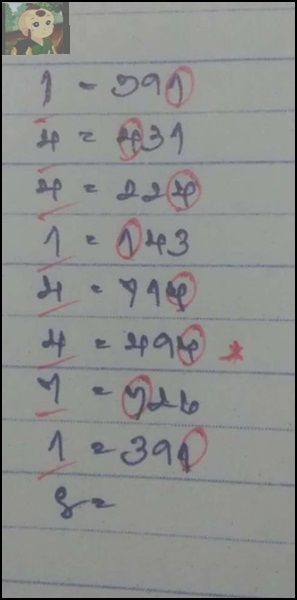 1 = 391
4 = 431
4 = 224
1 = 143
4 = 714
4 = 494
7 = 726
1 = 391
8 =